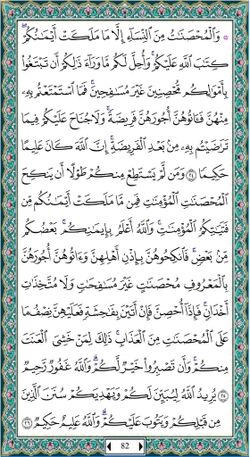 وَالْمُحْصَنَٰتُ مِنَ النِّسَاءِ إِلَّا مَا مَلَكَتْ أَيْمَٰنُكُمْ
كِتَٰبَ اللَّهِ عَلَيْكُمْ وَأُحِلَّ لَكُمْ مَا وَرَاءَ ذَٰلِكُمْ أَنْ تَبْتَغُوا
بِأَمْوَٰلِكُمْ مُحْصِنِينَ غَيْرَ مُسَٰفِحِينَ فَمَا اسْتَمْتَعْتُمْ بِهِ
مِنْهُنَّ فَـَٔاتُوهُنَّ أُجُورَهُنَّ فَرِيضَةً وَلَا جُنَاحَ عَلَيْكُمْ فِيمَا
تَرَٰضَيْتُمْ بِهِ مِنْ بَعْدِ الْفَرِيضَةِ إِنَّ اللَّهَ كَانَ عَلِيمًا
حَكِيمًا ٢٤ وَمَنْ لَمْ يَسْتَطِعْ مِنْكُمْ طَوْلًا أَنْ يَنْكِحَ
الْمُحْصَنَٰتِ الْمُؤْمِنَٰتِ فَمِنْ مَا مَلَكَتْ أَيْمَٰنُكُمْ مِنْ
فَتَيَٰتِكُمُ الْمُؤْمِنَٰتِ وَاللَّهُ أَعْلَمُ بِإِيمَٰنِكُمْ بَعْضُكُمْ
مِنْ بَعْضٍ فَانْكِحُوهُنَّ بِإِذْنِ أَهْلِهِنَّ وَءَاتُوهُنَّ أُجُورَهُنَّ
بِالْمَعْرُوفِ مُحْصَنَٰتٍ غَيْرَ مُسَٰفِحَٰتٍ وَلَا مُتَّخِذَٰتِ
أَخْدَانٍ فَإِذَا أُحْصِنَّ فَإِنْ أَتَيْنَ بِفَٰحِشَةٍ فَعَلَيْهِنَّ نِصْفُ مَا
عَلَى الْمُحْصَنَٰتِ مِنَ الْعَذَابِ ذَٰلِكَ لِمَنْ خَشِيَ الْعَنَتَ
مِنْكُمْ وَأَنْ تَصْبِرُوا خَيْرٌ لَكُمْ وَاللَّهُ غَفُورٌ رَحِيمٌ
٢٥ يُرِيدُ اللَّهُ لِيُبَيِّنَ لَكُمْ وَيَهْدِيَكُمْ سُنَنَ الَّذِينَ
مِنْ قَبْلِكُمْ وَيَتُوبَ عَلَيْكُمْ وَاللَّهُ عَلِيمٌ حَكِيمٌ ٢٦
82